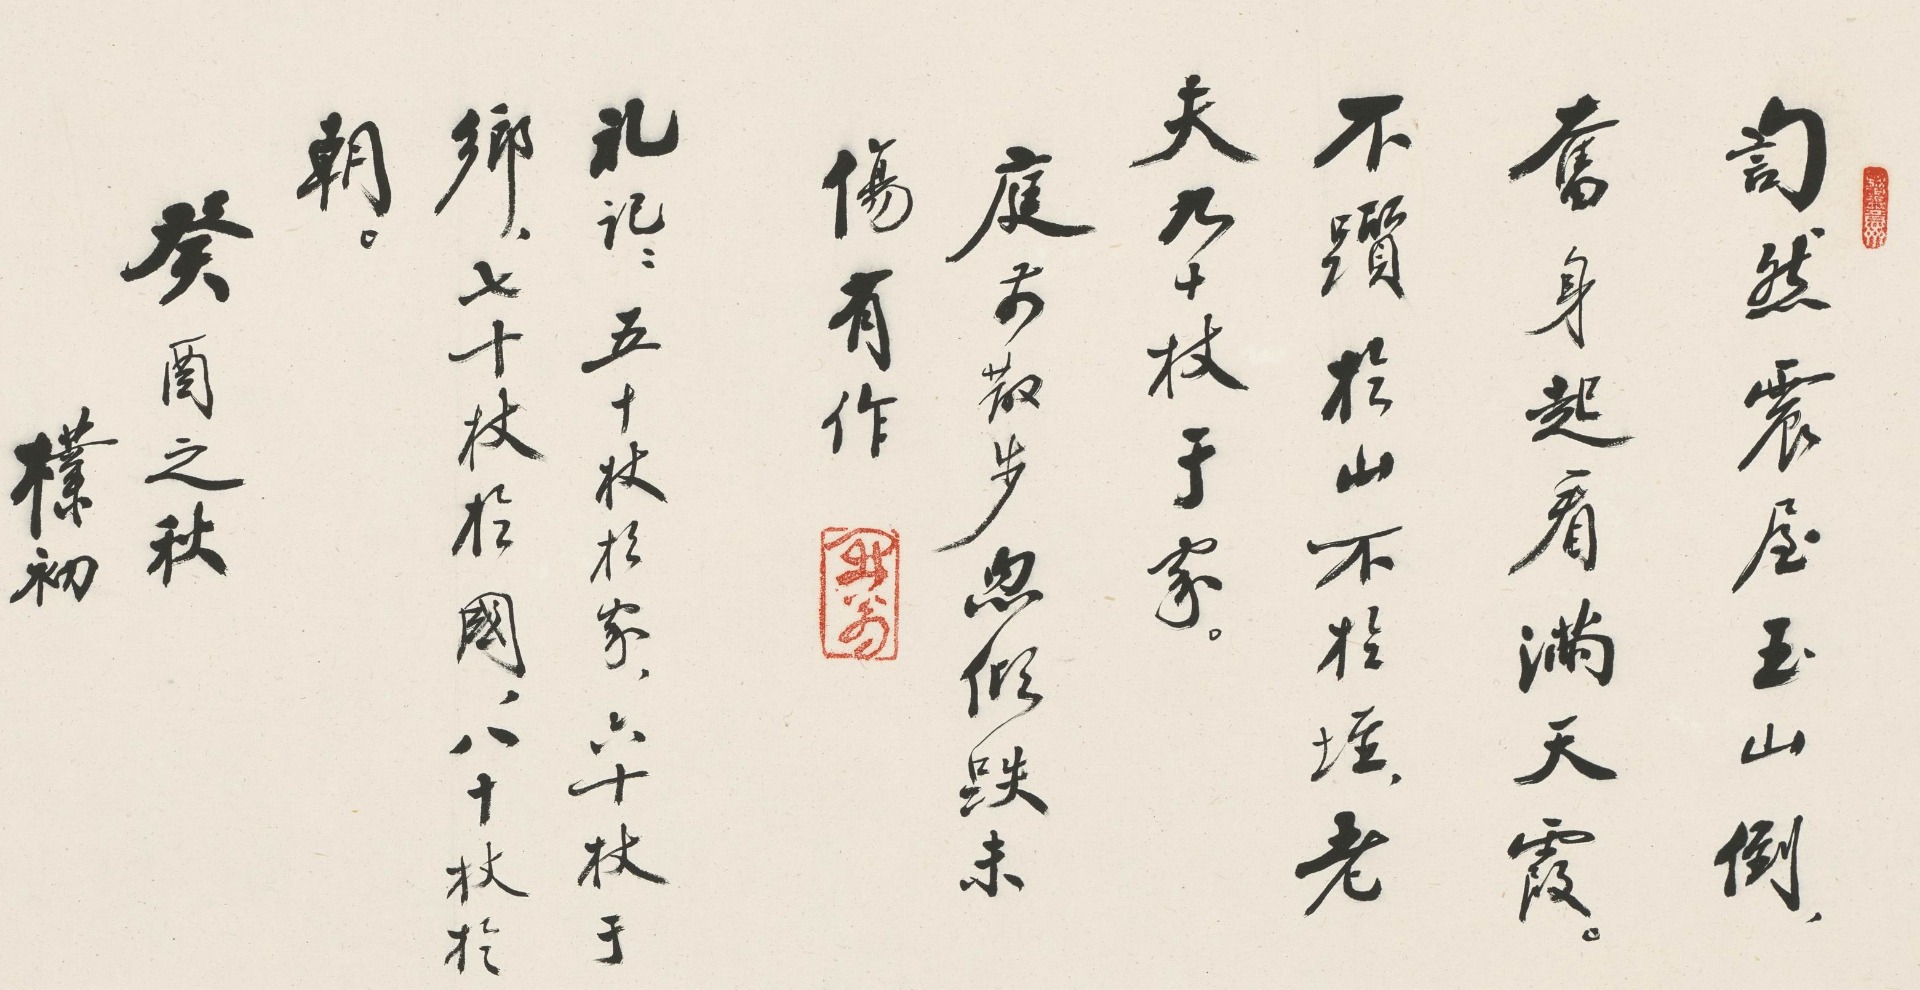 訇然震屋玉山倒、
奮身起看滿天霞。
不躓於山不於垤、老
夫九十杖于家。
庭前散步忽傾跌未
傷有作
礼記：五十杖於家、六十杖于
鄉、七十杖於國、八十杖於
朝。
癸酉之秋
樸初